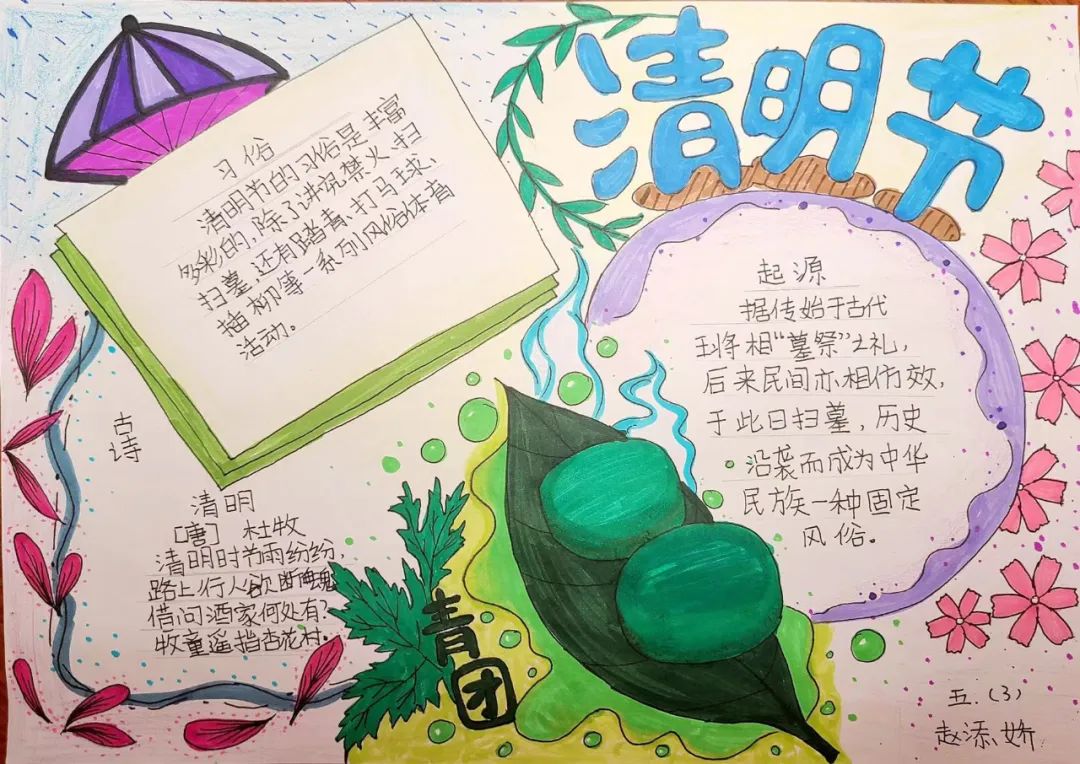 清明节
习俗
清明节的习俗是丰富
多彩的,除了讲究禁火、扫
扫墓,还有踏青、打马球、
插柳等一系列风俗体育
活动。
起源
据传始于古代
王将相“墓祭”之礼,
后来民间亦相仿效,
于此日扫墓,历史
沿袭而成为中华
民族一种固定
风俗。
古诗
清明
[唐] 杜牧
清明时节雨纷纷,
路上行人欲断魂
借问酒家何处有?
牧童遥指杏花村。
青团
五.(3)
赵添娇